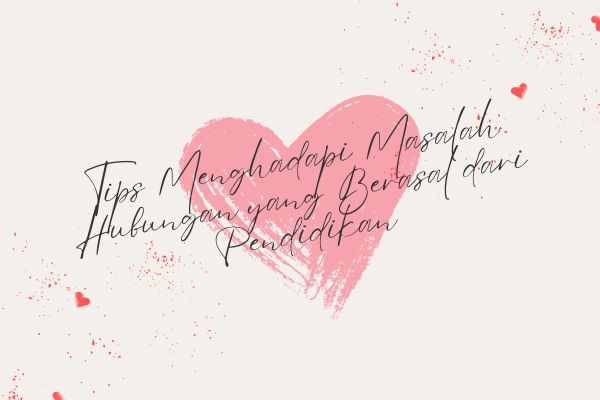 Tips Menghadapi Masalah
Hubungan yang Berasal dari
Pendidikan